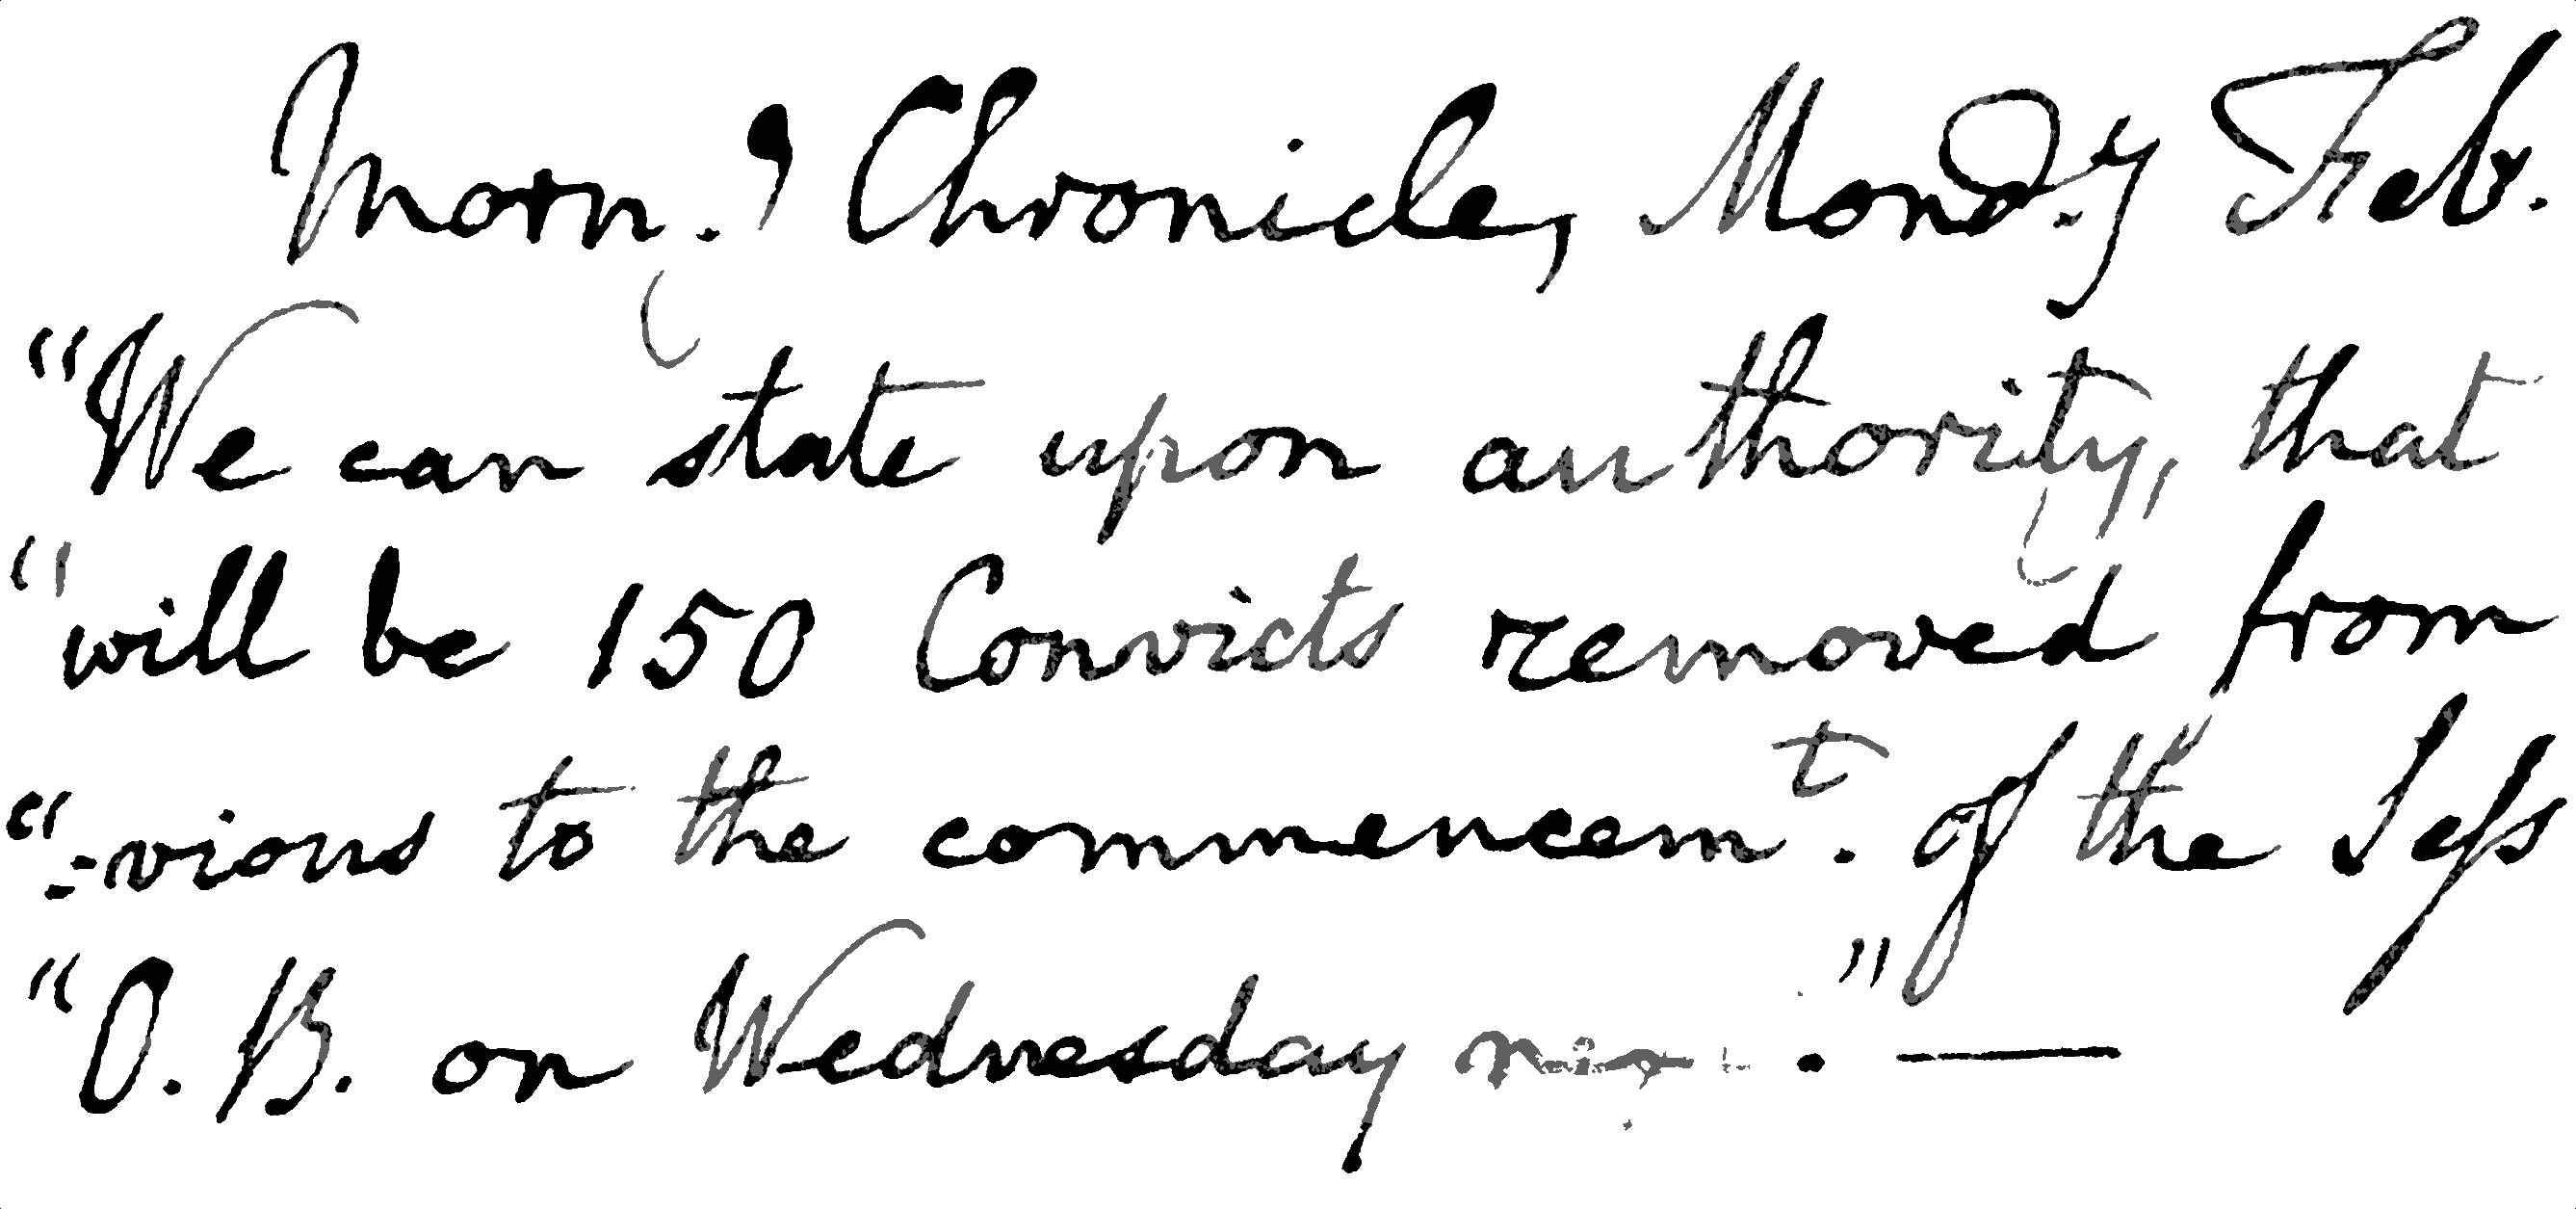 Morn.g Chronicle, Mond.y Feb.
"We can state upon authority, that
"will be 150 Convicts removed from
"=vious to the commencem.t of the Sess
"O. B. on Wednesday ." —